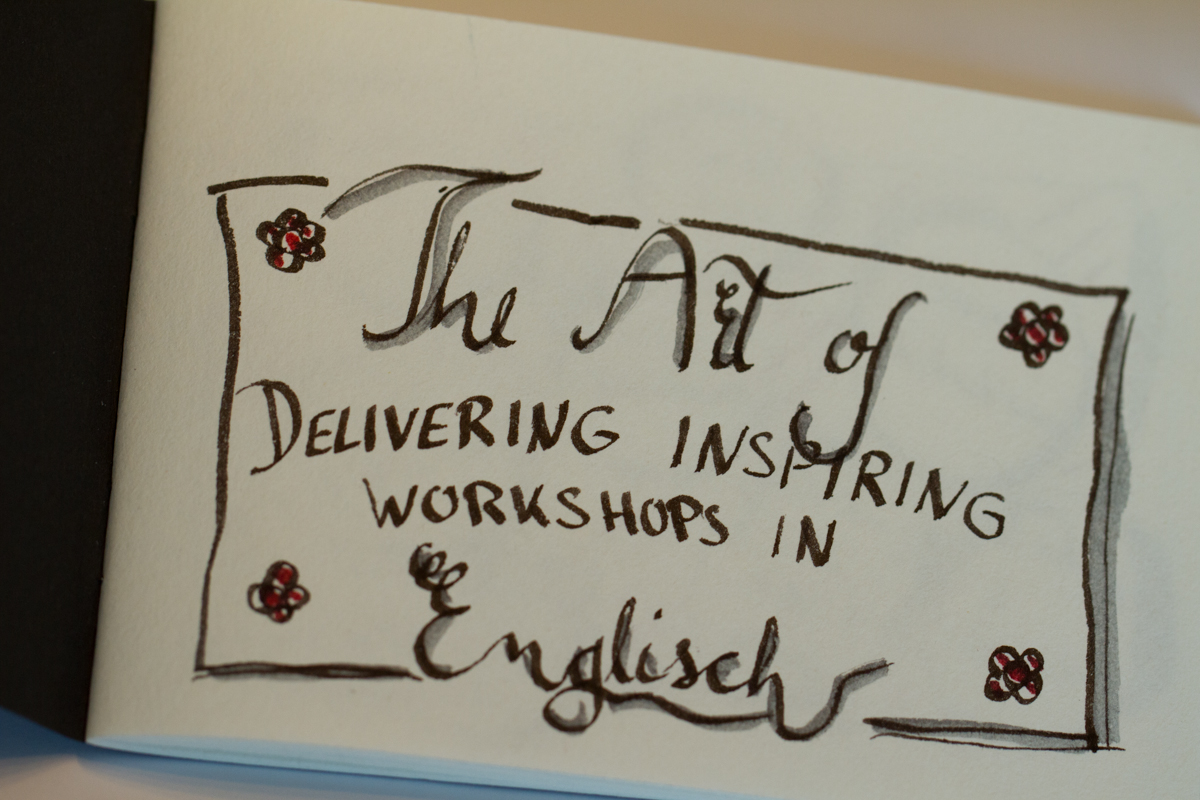 The Art of
DELIVERING INSPIRING
WORKSHOPS IN
Englisch